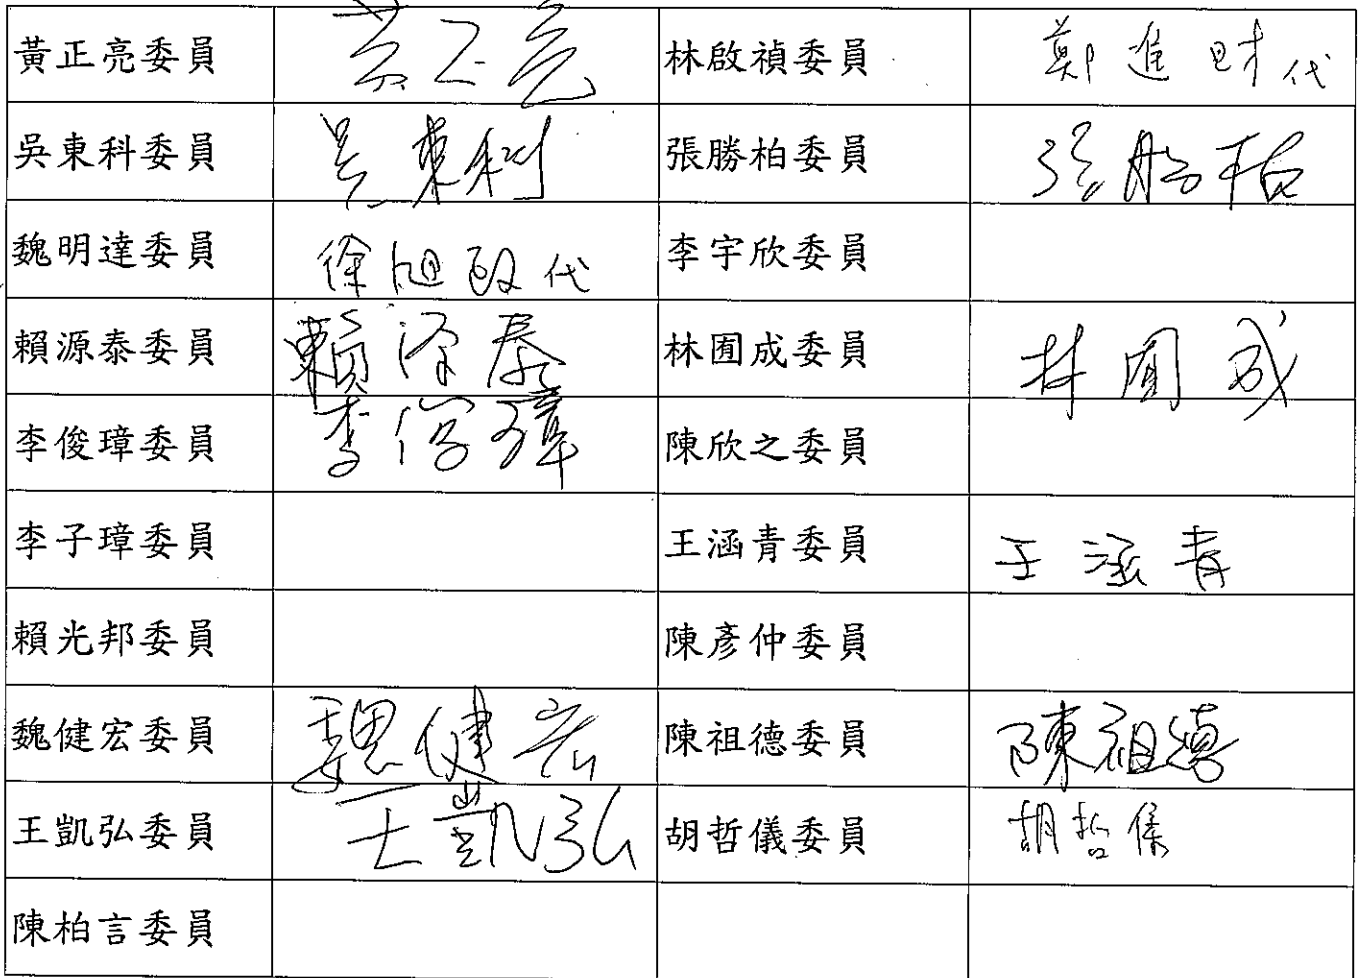 黃正亮委員 黃正亮 林啟禎委員 鄭進財代
吳東科委員 吳東科 張勝柏委員 張勝柏
魏明達委員 徐旭政代 李宇欣委員
賴源泰委員 賴源泰 林囿成委員 林囿成
李俊璋委員 李俊璋 陳欣之委員
李子璋委員 王涵青委員 王涵青
賴光邦委員 陳彥仲委員
魏健宏委員 魏健宏 陳祖德委員 陳祖德
王凱弘委員 王凱弘 胡哲儀委員 胡哲儀
陳柏言委員